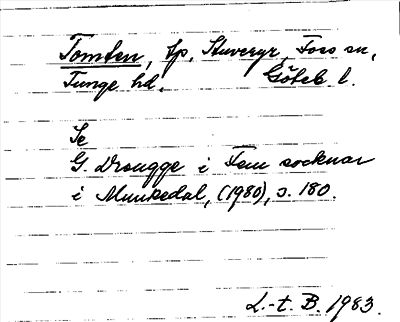 Tomten, tp, Stuveryr, Foss sn,
Tunge hd. Göteb l.
Se
G. Drougge i Fem socknar
i Munkedal, (1980), s. 180.
L.-t. B. 1983.